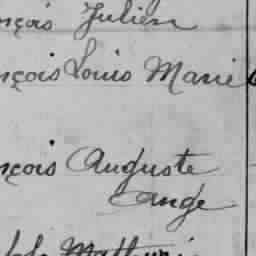 nçois Julien
nçois Louis Marie
nçois Auguste
Ange